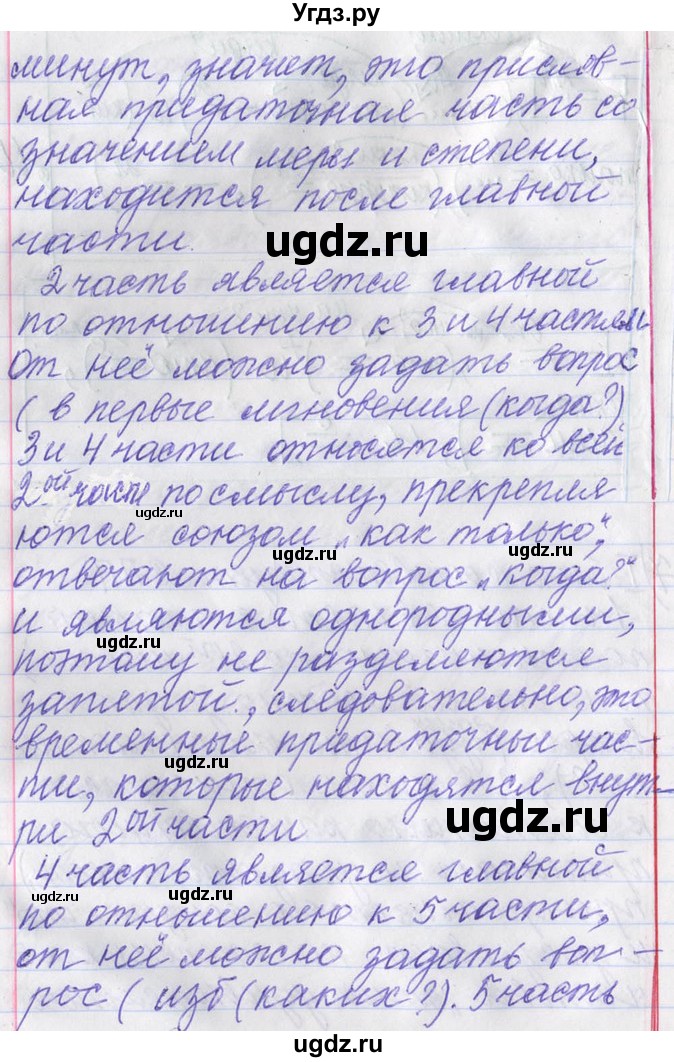 Угдз.ру
минут, значит, это прислов-
ная придаточная часть со
значением меры и степени,
находится после главной
части.
ugdz.ru
2 часть является главной
по отношению к 3 и 4 частям
От неё можно задать вопрос
(в первые мгновения (когда?)
3 и 4 части относятся ко всей
2ой части по смыслу, прекрепля
ugdz.ru
ются союзом „как только“,
ugdz.ru
ugdz.ru
отвечают на вопрос „когда?“
и являются однородными,
ugdz.ru
поэтому не разделяются
запятой, следовательно, это
временные придаточные час-
ugdz.ru
ти, которые находятся внут-
ри 2ой части
ugdz.ru
4 часть является главной
ugdz.ru
по отнышению к 5 части,
от неё можно задать воп-
рос (изб (каких?). 5 часть
ugdz.ru